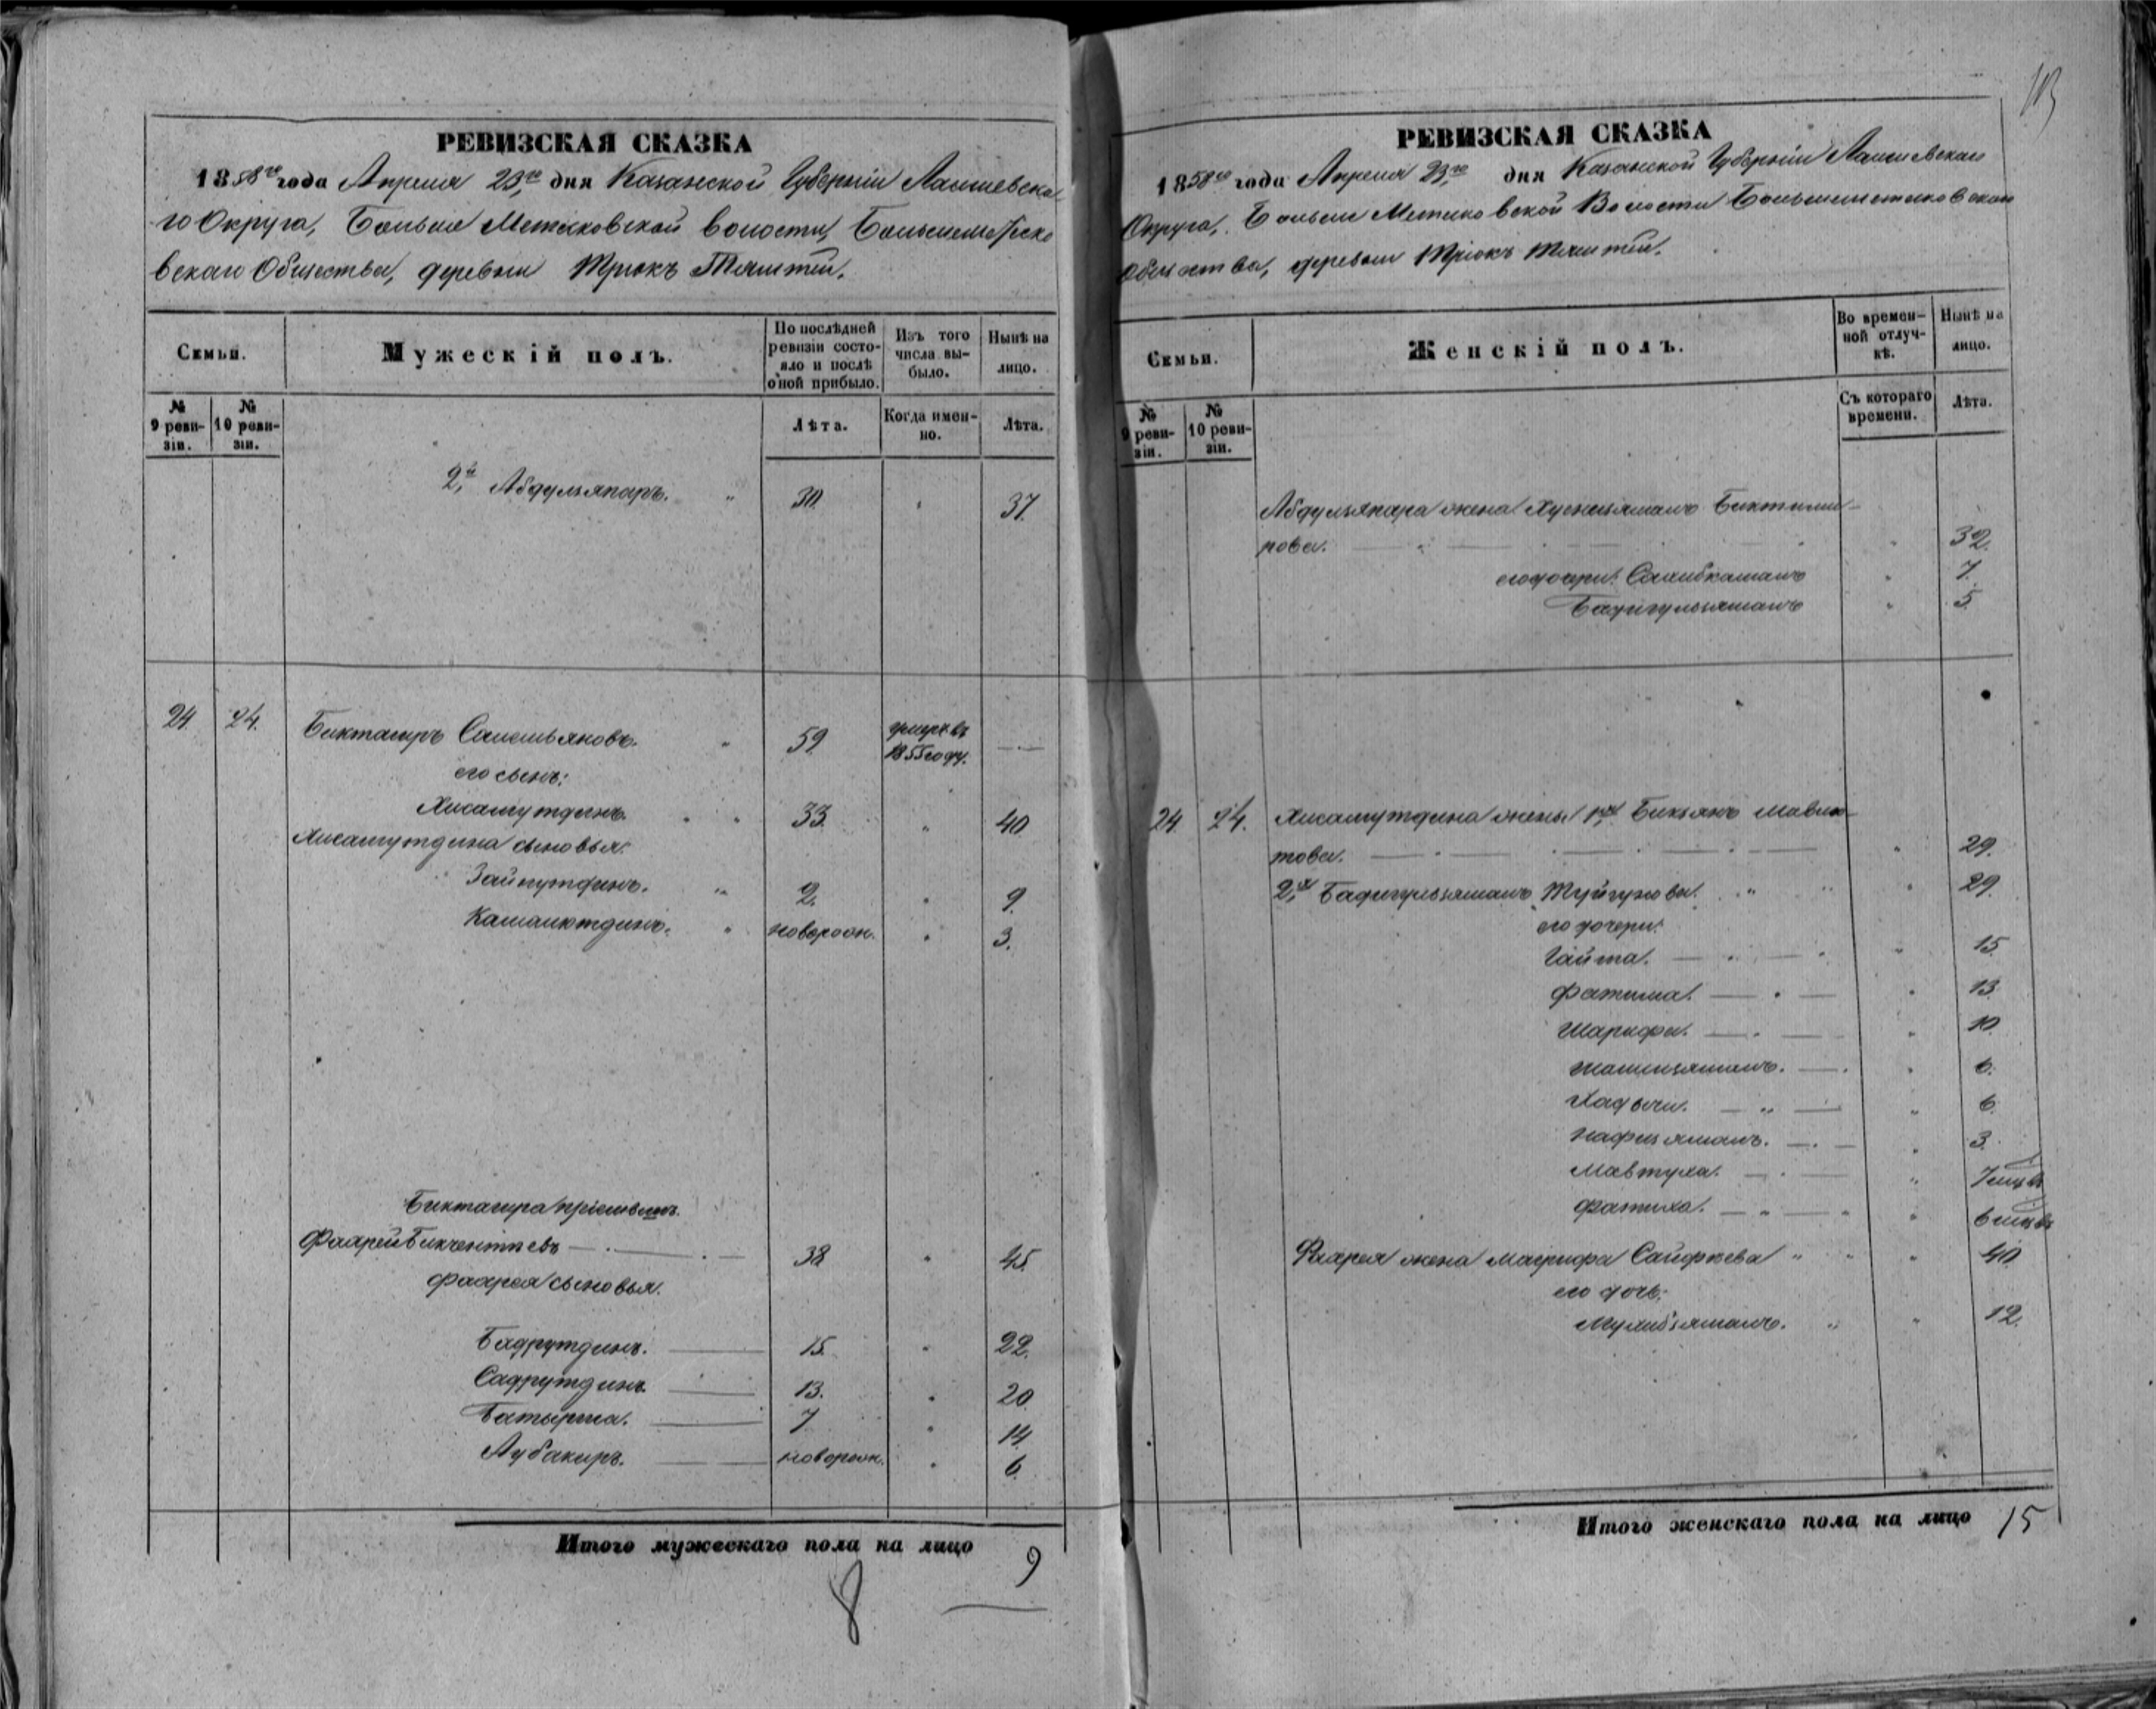 РЕВИЗСКАЯ СКАЗКА
1858го года Апреля 23го дня Казанской Губерніи Лаишевска-
го Округа, Больше Метесковской волости, Большеметеско
вскаго Общества, деревни Трюкъ Тямтей.
Семьи.
Мужескій полъ.
По послѣдней ревизіи состо-
яло и послѣ оной прибыло.
Изъ того числа вы-
было.
Нынѣ на лицо.
№ 9 реви-
зіи.
№ 10 реви-
зіи.
Лѣта.
Когда имен-
но.
Лѣта.
2й Абдульяпаръ. 30. 37.
24. 24. Биктагиръ Самельяновъ. 59. умеръ въ 1855 году.
его сынъ:
Хисамутдинъ. 33. 40
Хисамутдина сыновья:
Зайнутдинъ. 2. 9.
Камалютдинъ. новорож. 3.
Биктагира пріемышъ.
Фаарей Бикчентаевъ 38 45.
Фаарея сыновья.
Бадрутдинъ. 15. 22.
Садрутдинъ. 13. 20
Батырша. 7 14
Аубакиръ. новорож. 6.
Итого мужескаго пола на лицо 9
8
РЕВИЗСКАЯ СКАЗКА
1858го года Апреля 23го дня Казанской Губерніи Лаишевскаго
Округа, Больше Метесковской Волости Большеметесковскаго
Общества, деревни Трюкъ Тямтей.
Семьи.
Женскій полъ.
Во времен-
ной отлуч-
кѣ.
Нынѣ на лицо.
№ 9 реви-
зіи.
№ 10 реви-
зіи.
Съ котораго времени.
Лѣта.
Абдульяпара жена Хуснизямалъ Биктими-
рова. 32.
его дочери: Сахибкамалъ 7.
Бадигульзямалъ 5.
24. 24. Хисамутдина жены 1я Бикъянъ Мавлю-
това. 29.
2я Бадигульзямалъ Туйгунова. 29.
его дочери:
Гайша. 15
Фатима. 13.
Шарифа. 10.
Шамсизямалъ. 6.
Хадыча. 6
Нафизямалъ. 3.
Мавтуха. 7 мцвъ
Фатиха. 6 мцвъ
Фаарея жена Магрифа Сайфѣева 40
его дочь:
Мухибзямалъ. 12.
Итого женскаго пола на лицо 15